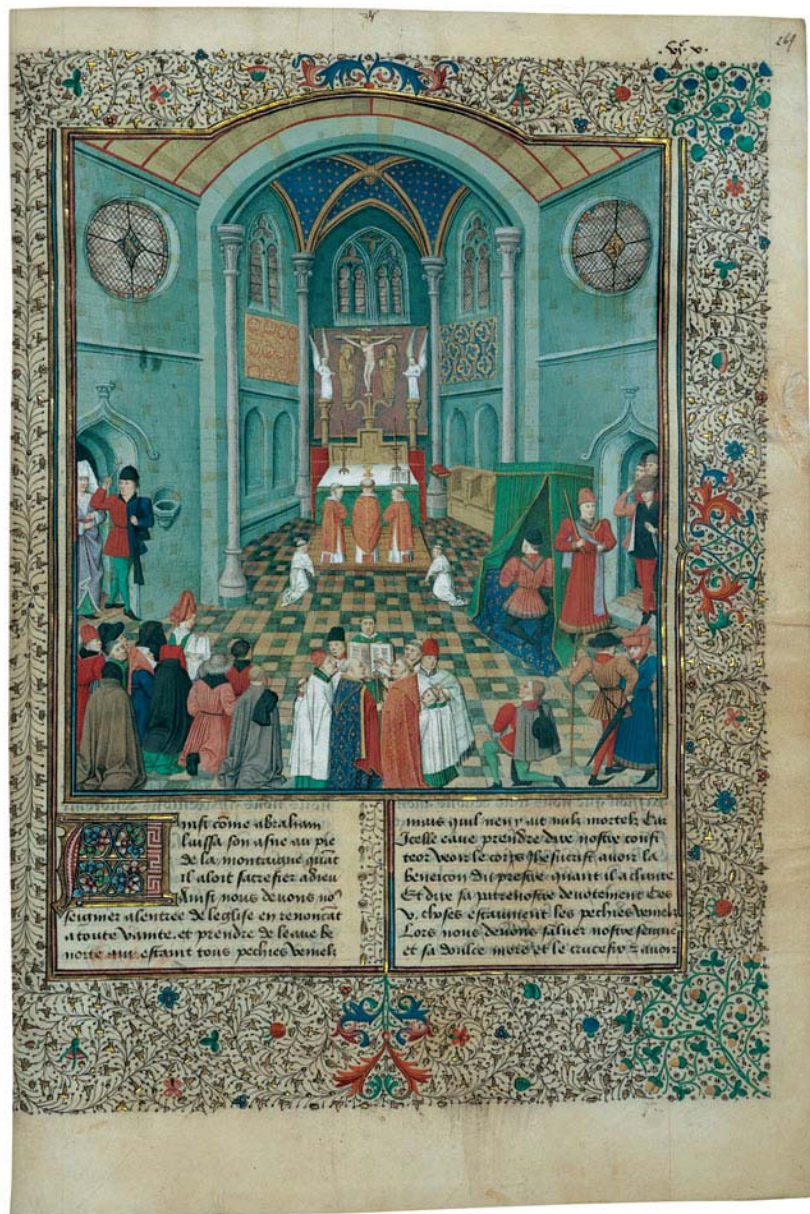 vͨ. v.
269
Ainsi cōme abraham
laissa son asne au pie
de la montaigne quāt
il aloit sacrefier a dieu
Ainsi nous deuons noˢ
seigner a lentree de leglise en renoncāt
a toute vanite. et prendre de leaue be
noite qui estaint tous pechies veniels
mais quil nen y ait nulz mortelz Car
Icelle eaue prendre dire nostre confi
teor veoir le corps Ihesucrist auoir la
beneicon du prestre quant il a chante
Et dire sa patrenostre deuotement Ces
v. choses estaiment les pechies veniels
Lors nous deuons saluer nostre seigneᵘʳ
et sa doulce mere et le crucefix ⁊ auoir